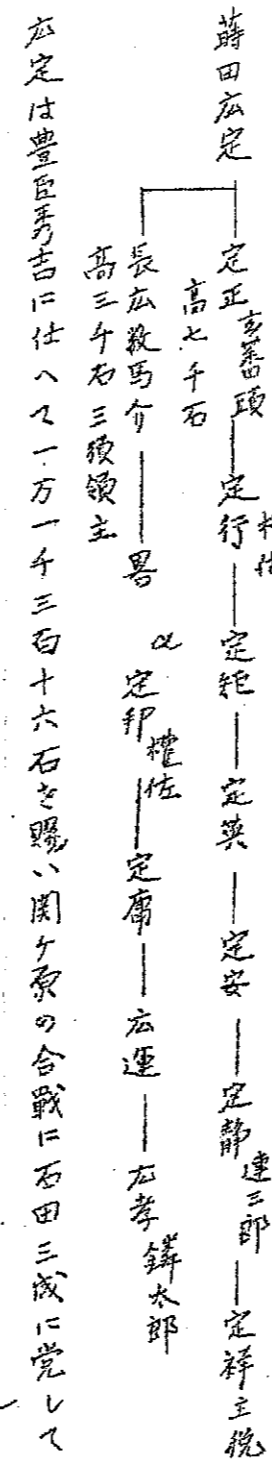 蒔田広定
定正玄蕃頭―定行権佐―定矩―定英―定安―定静連三郎―定祥主税
高七千石
長広数馬介―畧
高三千石 三須領主
α 定邦権佐―定庸―広運―広孝鏻太郎
広定は豊臣秀吉に仕へて一万一千三百十六石を賜い関ヶ原の合戦に石田三成に党して